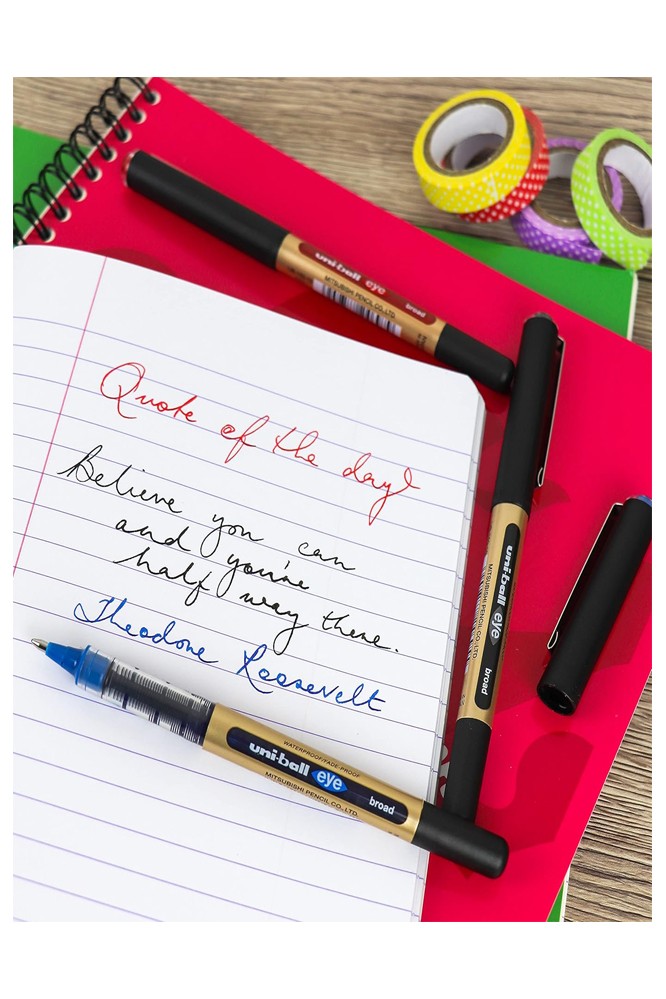 uni-ball eye
MITSUBISHI PENCIL CO. LTD.
broad
Quote of the day!
Believe you can
and you're
half way there.
Theodore Roosevelt
uni-ball eye
MITSUBISHI PENCIL CO. LTD.
broad
WATERPROOF/FADE-PROOF
uni-ball eye
broad
MITSUBISHI PENCIL CO., LTD.